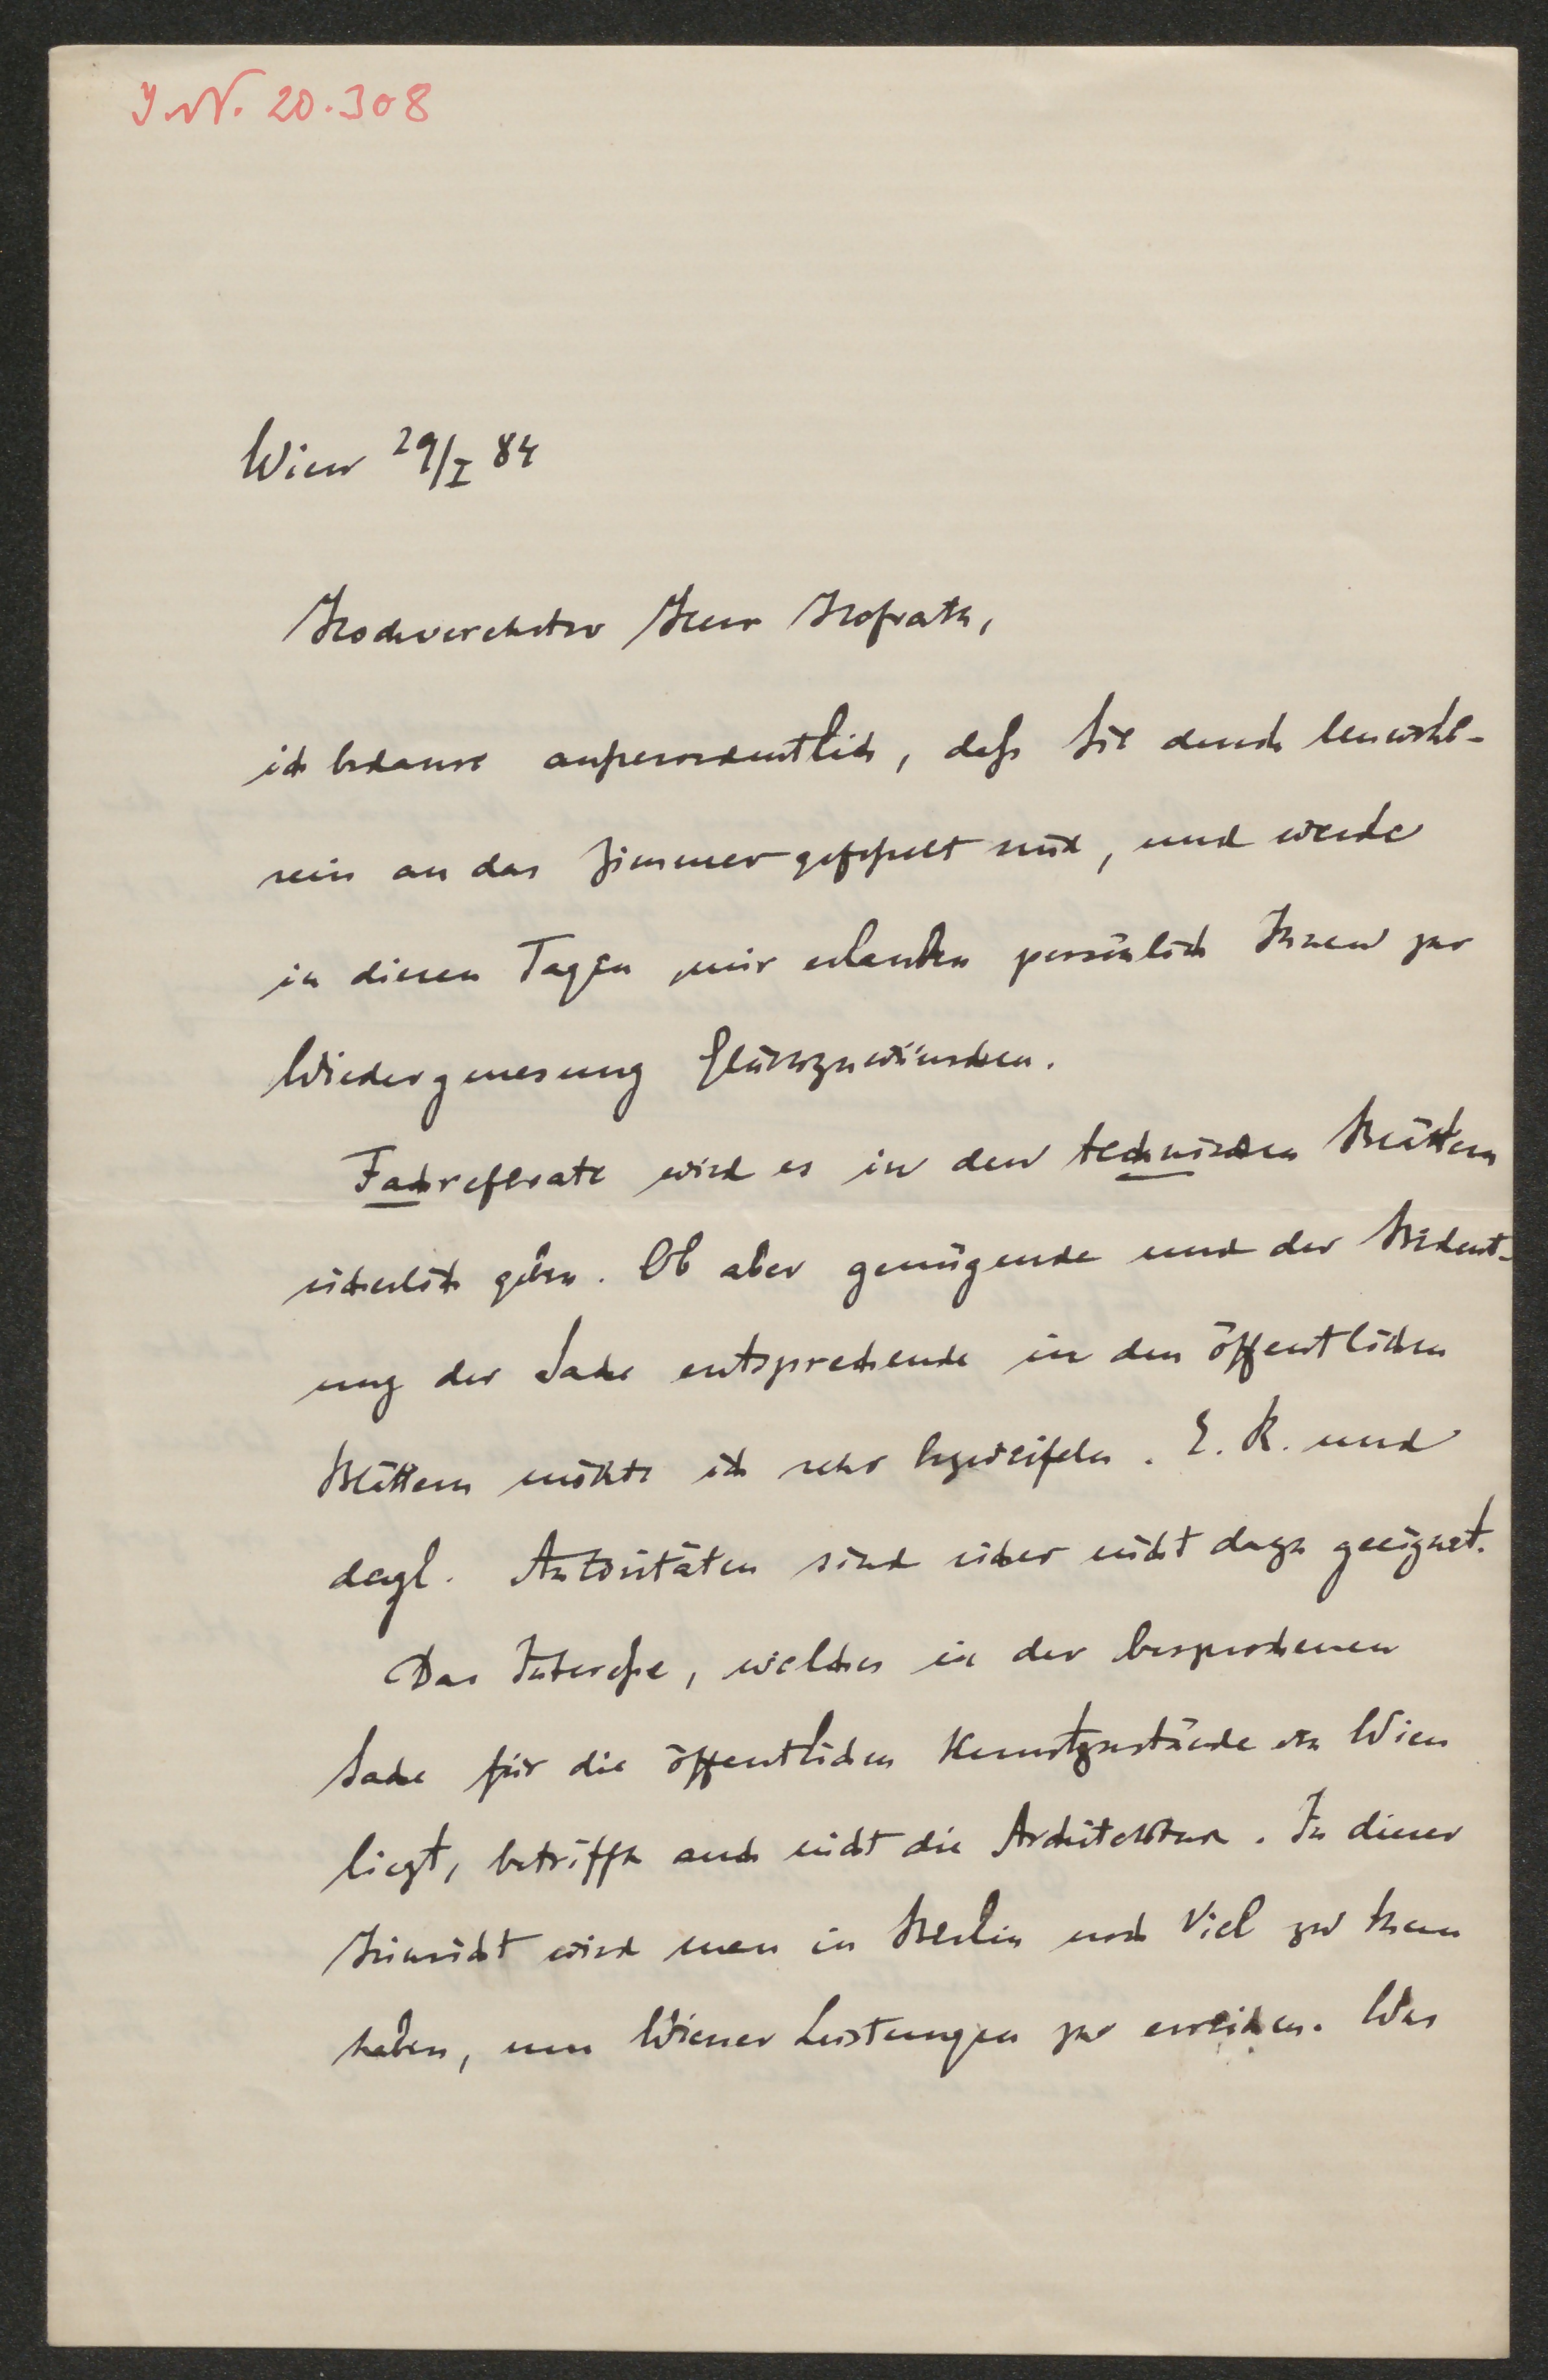 I. N. 20.308
Wien 29/I 84
Hochverehrter Herr Hofrath,
ich bedaure außerordentlich, daß Sie durch Unwohl-
sein an das Zimmer gefesselt sind, und werde
in diesen Tagen mir erlauben persönlich Ihnen zur
Wiedergenesung Glückzuwünschen.
Fachreferate wird es in den technischen Blättern
sicherlich geben. Ob aber genügende und der Bedeut-
ung der Sache entsprechende in den öffentlichen
Blättern möchte ich sehr bezweifeln. E. R. und
dergl. Autoritäten sind sicher nicht dazu geeignet.
Das Interesse, welches in der besprochenen
Sache für die öffentlichen Kunstzustände in Wien
liegt, betrifft auch nicht die Architektur. In dieser
Hinsicht wird man in Berlin noch Viel zu thun
haben, um Wiener Leistungen zu erreichen. Was